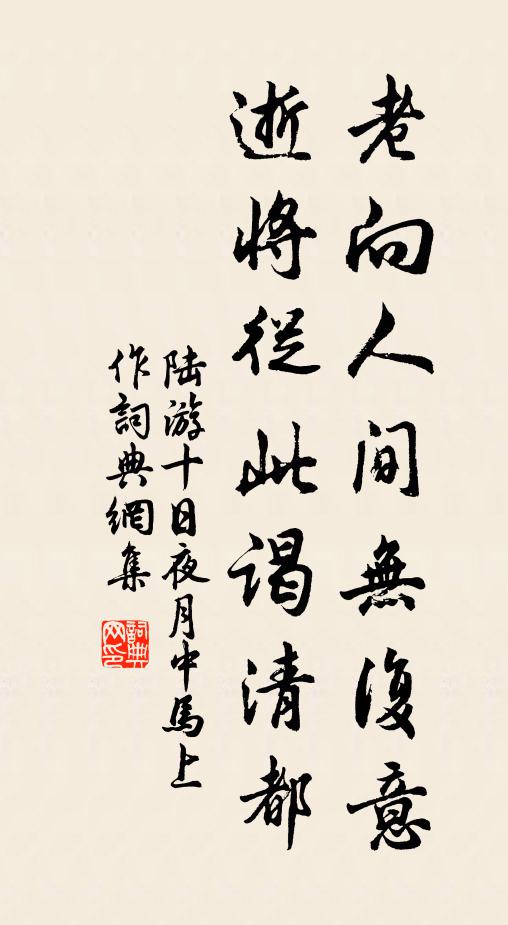 老向人间無復意
逝將從此謁清都
陆游十日夜月中馬上
作詞典網集
詞典
网印